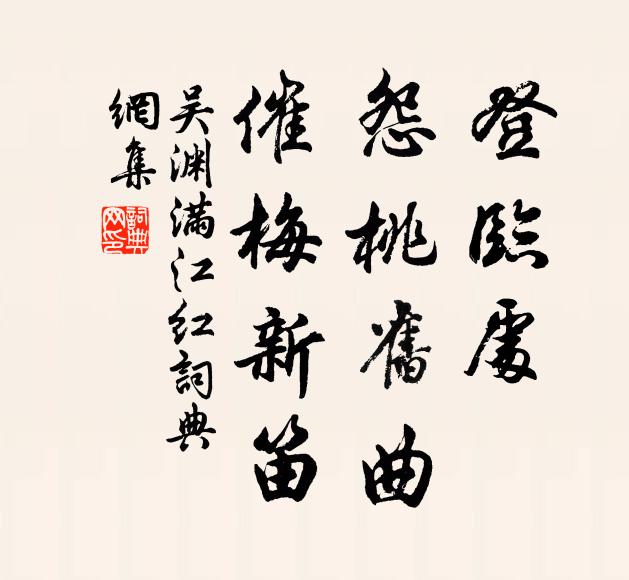 登臨處
怨桃舊曲
催梅新笛
吴渊满江红詞典
網集
詞典
网印